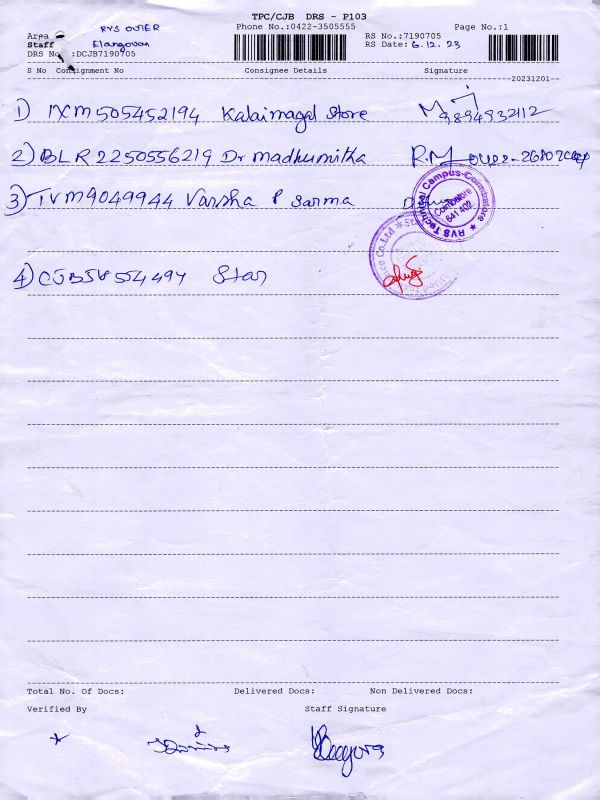 TPC/CJB DRS - P103
Area RVS OUTER Phone No.:0422-3505555 RS No.:7190705 Page No.:1
Staff Elangovan RS Date: 6.12.23
DRS No :DCJB7190705
S No Consignment No Consignee Details Signature
20231201
1) IXM505452194 Kalaimagal Store 9894932112
2) BLR2250556219 Dr Madhumitha R.M
3) TVM9049944 Varsha P Sarma
RVS Technical Campus-Coimbatore
Coimbatore
641 402
ce Co.Ltd
4) Star
Total No. Of Docs: Delivered Docs: Non Delivered Docs:
Verified By Staff Signature